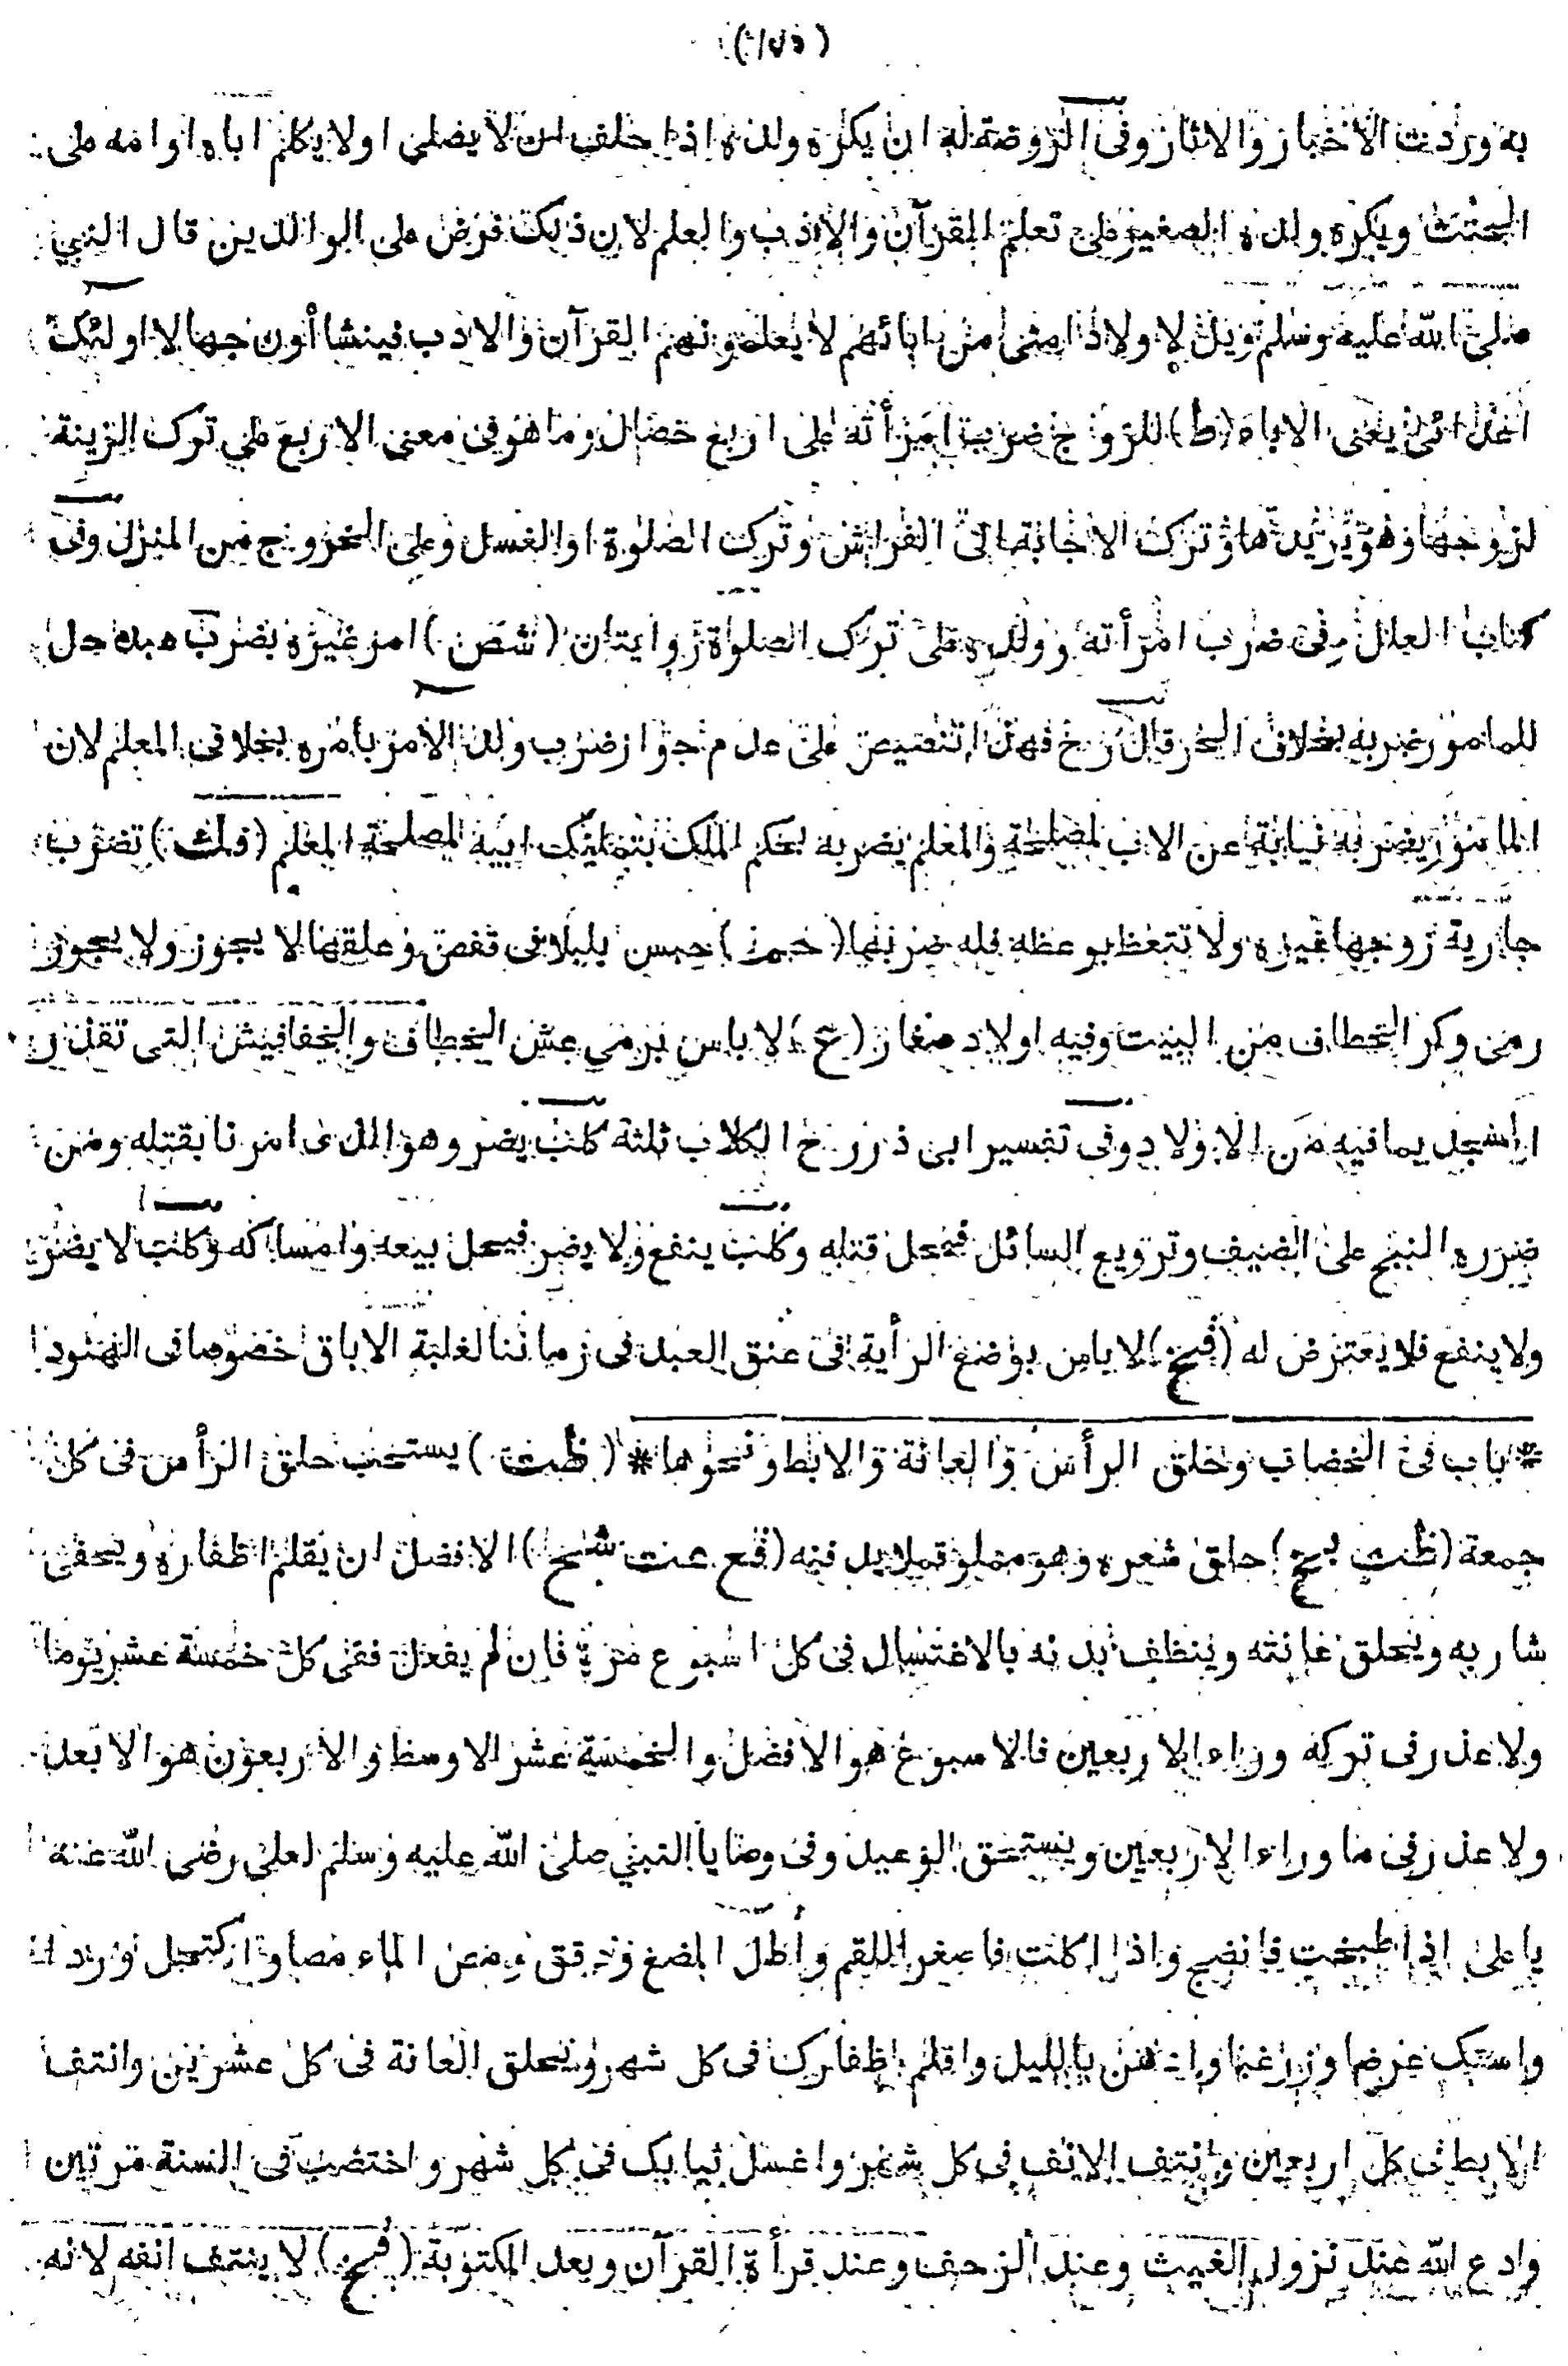 (١٧٥)
به وردت الاخبار والاثار وفى الروضة له ان يكره ولده اذا حلف ان لا يصلى اولا يكلم اباه او امه على
الحنث ويكره ولده الصغير على تعلم القرآن والادب والعلم لان ذلك فرض على الوالدين قال النبى
صلى الله عليه وسلم ويل لاولاد امتى من ابائهم لا يعلمونهم القرآن والادب فينشاأون جهالا اولئك
اعدائى يعنى الاباه (ط) للزوج ضرب امرأته على اربع خصال وما هو فى معنى الاربع على ترك الزينة
لزوجها وهو يريدها وترك الاجابة الى الفراش وترك الصلوة او الغسل وعلى الخروج من المنزل وفى
كتاب العلل وفى ضرب امرأته وولده على ترك الصلوة روايتان (شص) امر غيره بضرب عبده حل
للمامور ضربه بخلاف الحر قال رح فهذا تنصيص على عدم جواز ضرب ولد الآمر بأمره بخلاف المعلم لان
المامور يضربه نيابة عن الاب لمصلحة والمعلم يضربه بحكم الملك بتمليك ابيه لمصلحة المعلم (فلك) تضرب
جارية زوجها غيره ولا تتعظ بوعظه فله ضربها (خمر) حبس بلبلا فى قفص وعلقها لا يجوز ولا يجوز
رمى وكر الخطاف من البيت وفيه اولاد صغار (عح) لا باس برمى عش الخطاف والخفافيش التى تقذر
المسجد بما فيه من الاولاد وفى تفسير ابى ذر رح الكلاب ثلثة كلب يضر وهو الذى امرنا بقتله ومن
ضرره النبح على الضيف وترويع السائل فيحل قتله وكلب ينفع ولا يضر فيحل بيعه وامساكه وكلب لا يضر
ولا ينفع فلا يعترض له (فج) لا باس بوضع الرأية فى عنق العبد فى زماننا لغلبة الاباق خصوصا فى الهنود
* باب فى الخضاب وحلق الرأس والعانة والابط ونحوها * (ظت) يستحب حلق الرأس فى كل
جمعة (ظت بخ) حلق شعره وهو مملو قملا يد فيه (قع عت شبخ) الافضل ان يقلم اظفاره ويحفى
شاربه ويحلق عانته وينظف بدنه بالاغتسال فى كل اسبوع مرة فان لم يفعل ففى كل خمسة عشر يوما
ولا عذر فى تركه وراء الاربعين فالاسبوع هو الافضل والخمسة عشر الاوسط والاربعون هو الابعد
ولا عذر فى ما وراء الاربعين ويستحق الوعيد وفى وصايا النبى صلى الله عليه وسلم لعلى رضى الله عنه
يا على اذا طبخت فانضج واذا اكلت فاصغر اللقم وأطل المضغ ودقق ومص الماء مصا واكتحل وردا
واستك عرضا وزر غبا وادهن بالليل واقلم اظفارك فى كل شهر ونحلق العانة فى كل عشرين وانتف
الابط فى كل اربعين وانتف الانف فى كل شهر واغسل ثيابك فى كل شهر واختضب فى السنة مرتين
وادع الله عند نزول الغيث وعند الزحف وعند قرأة القرآن وبعد المكتوبة (فج) لا ينتف انفه لانه